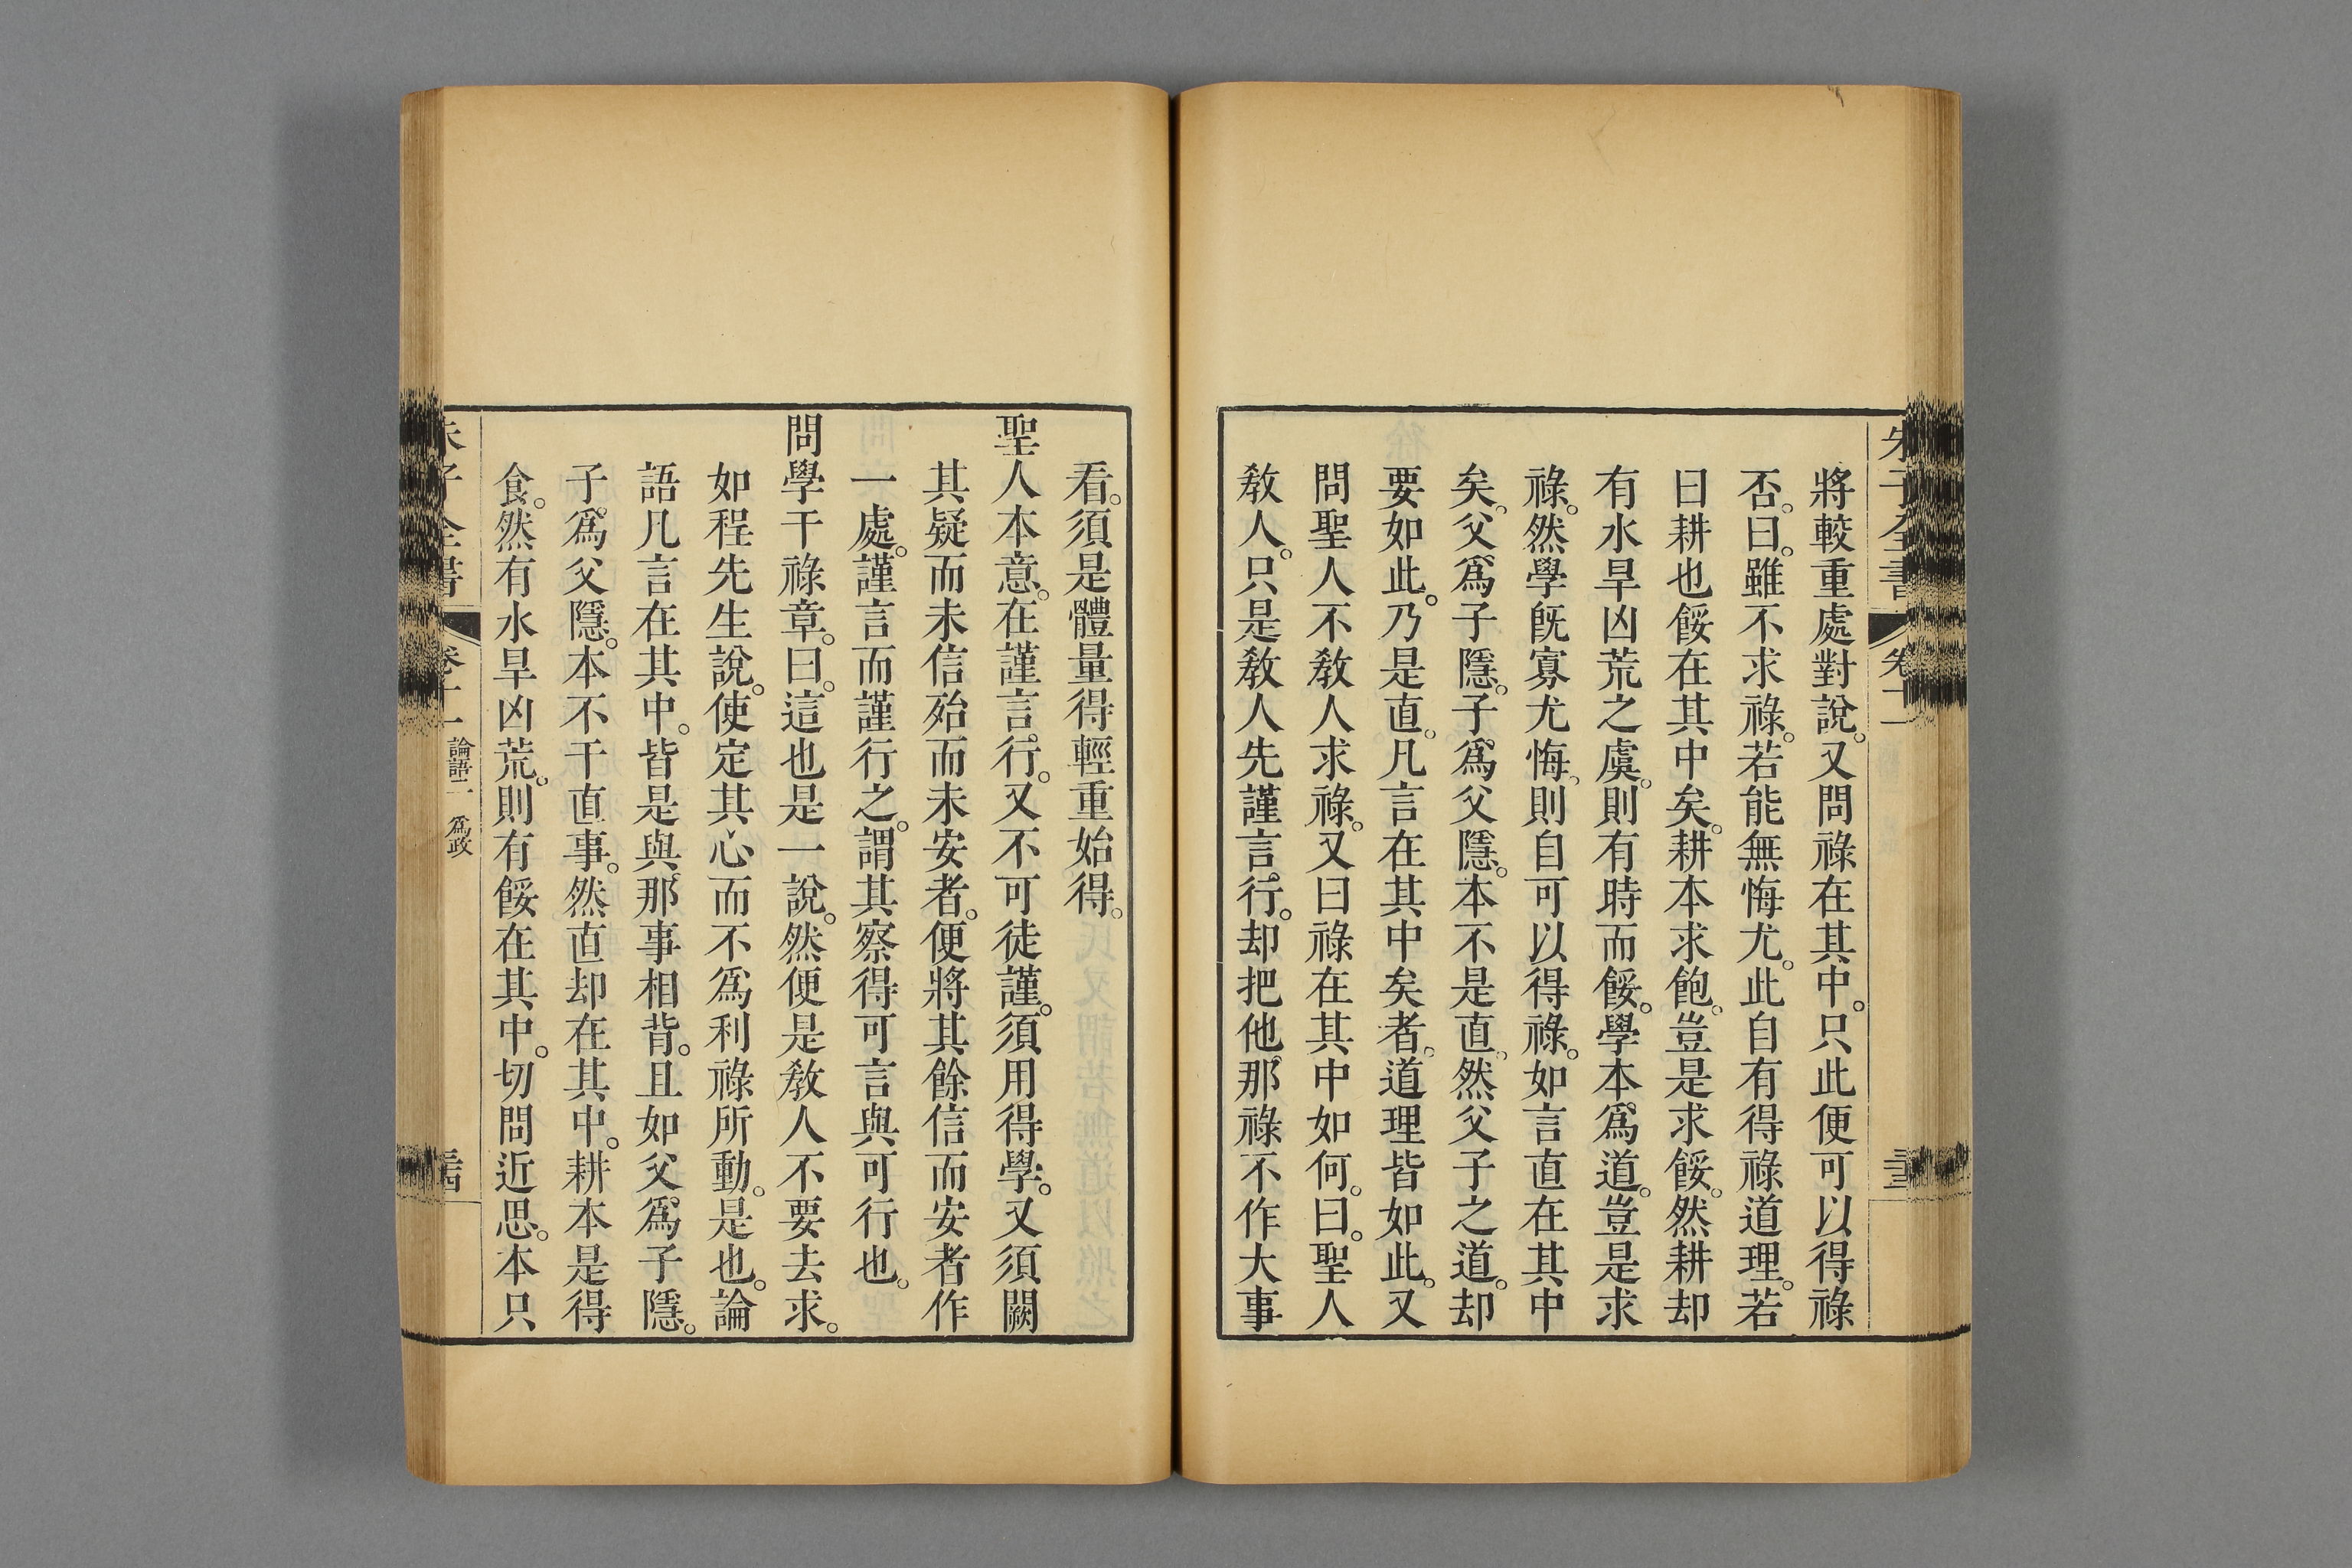 將較重處對說。又問祿在其中。只此便可以得祿
否。曰。雖不求祿。若能無悔尤。此自有得祿道理。若
曰耕也餒在其中矣。耕本求飽。豈是求餒。然耕却
有水旱凶荒之虞。則有時而餒。學本爲道。豈是求
祿。然學旣寡尤悔。則自可以得祿。如言直在其中
矣。父爲子隱。子爲父隱。本不是直。然父子之道。却
要如此。乃是直。凡言在其中矣者。道理皆如此。又
問聖人不敎人求祿。又曰祿在其中如何。曰。聖人
敎人。只是敎人先謹言行。却把他那祿不作大事
看。須是體量得輕重始得。
聖人本意。在謹言行。又不可徒謹。須用得學。又須闕
其疑而未信殆而未安者。便將其餘信而安者作
一處。謹言而謹行之。謂其察得可言與可行也。
問學干祿章。曰。這也是一說。然便是敎人不要去求。
如程先生說。使定其心而不爲利祿所動。是也。論
語凡言在其中。皆是與那事相背。且如父爲子隱。
子爲父隱。本不干直事。然直却在其中。耕本是得
食。然有水旱凶荒。則有餒在其中。切問近思。本只
朱子全書
卷十一
論語二 爲政